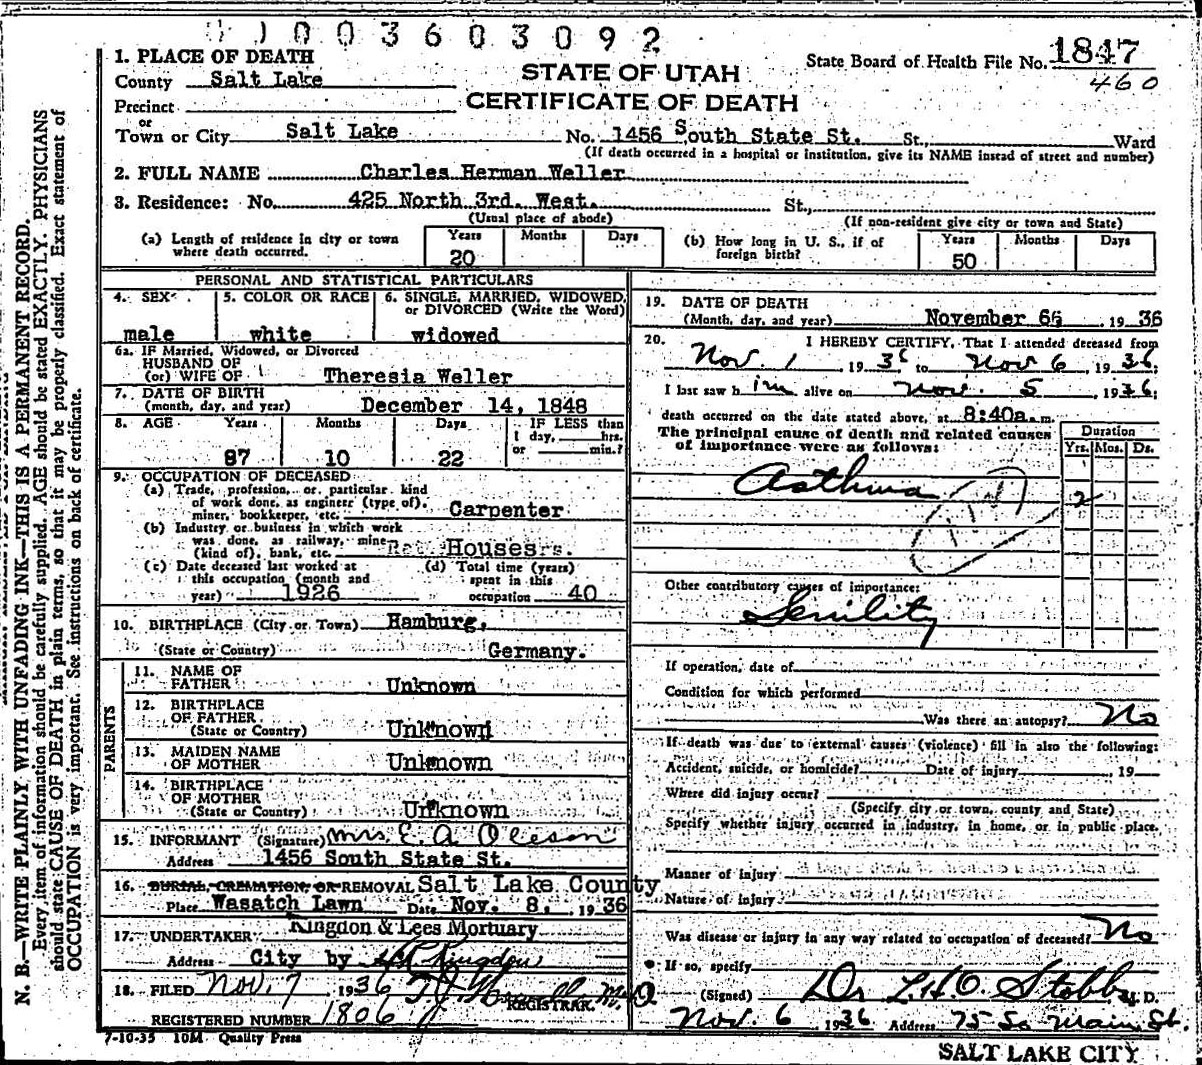 01003603092
1. PLACE OF DEATH
County Salt Lake
State Board of Health File No. 1847
460
STATE OF UTAH
CERTIFICATE OF DEATH
Precinct
or
Town or City Salt Lake No. 1456 South State St. St., Ward
(If death occurred in a hospital or institution, give its NAME instead of street and number)
2. FULL NAME Charles Herman Weller
3. Residence: No. 425 North 3rd. West. St.,
(Usual place of abode) (If non-resident give city or town and State)
(a) Length of residence in city or town where death occurred. Years 20 Months Days
(b) How long in U. S., if of foreign birth? Years 50 Months Days
PERSONAL AND STATISTICAL PARTICULARS
4. SEX male
5. COLOR OR RACE white
6. SINGLE, MARRIED, WIDOWED, or DIVORCED (Write the Word) widowed
6a. IF Married, Widowed, or Divorced
HUSBAND OF
(or) WIFE OF Theresia Weller
7. DATE OF BIRTH
(month, day, and year) December 14, 1848
8. AGE Years 87 Months 10 Days 22 IF LESS than 1 day, hrs. or min.?
9. OCCUPATION OF DECEASED
(a) Trade, profession, or particular kind
of work done, as engineer (type of),
miner, bookkeeper, etc. Carpenter
(b) Industry or business in which work
was done, as railway, mine
(kind of), bank, etc. Houses
(c) Date deceased last worked at
this occupation (month and
year) 1926
(d) Total time (years)
spent in this
occupation 40
10. BIRTHPLACE (City or Town) Hamburg,
(State or Country) Germany.
PARENTS
11. NAME OF
FATHER Unknown
12. BIRTHPLACE
OF FATHER
(State or Country) Unknown
13. MAIDEN NAME
OF MOTHER Unknown
14. BIRTHPLACE
OF MOTHER
(State or Country) Unknown
15. INFORMANT (Signature) Mrs. E. A. Oleson
Address 1456 South State St.
16. BURIAL, CREMATION, OR REMOVAL Salt Lake County
Place Wasatch Lawn Date Nov. 8, 1936
17. UNDERTAKER Kingdon & Lees Mortuary
Address City by Kingdon
18. FILED Nov. 7 1936 REGISTRAR.
REGISTERED NUMBER 1806
7-10-35 10M Quality Press
19. DATE OF DEATH
(Month, day, and year) November 6 1936
20. I HEREBY CERTIFY, That I attended deceased from
Nov 1, 1936 to Nov 6, 1936;
I last saw him alive on Nov. 5, 1936;
death occurred on the date stated above, at 8:40a.m.
The principal cause of death and related causes
of importance were as follows:
Duration
Yrs. Mos. Ds.
Asthma 2
Other contributory causes of importance:
Senility
If operation, date of
Condition for which performed
Was there an autopsy? No
If death was due to external causes (violence) fill in also the following:
Accident, suicide, or homicide? Date of injury , 19
Where did injury occur?
(Specify city or town, county and State)
Specify whether injury occurred in industry, in home, or in public place.
Manner of injury
Nature of injury
Was disease or injury in any way related to occupation of deceased? No
If so, specify
(Signed) Dr L.H.O. Stobbe M. D.
Nov. 6 1936 Address 75 So Main St.
SALT LAKE CITY
N. B.—WRITE PLAINLY WITH UNFADING INK—THIS IS A PERMANENT RECORD.
Every item of information should be carefully supplied. AGE should be stated EXACTLY. PHYSICIANS
should state CAUSE OF DEATH in plain terms, so that it may be properly classified. Exact statement of
OCCUPATION is very important. See instructions on back of certificate.